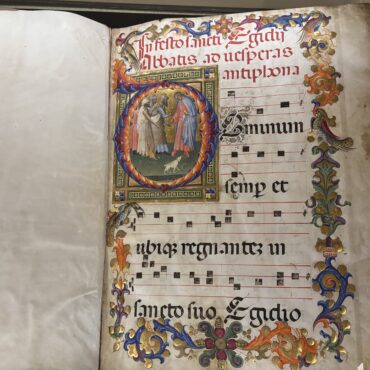 In festo sancti Egidij
Abbatis ad uesperas
antiphona
DOminum
semp et
ubiq; regnantez in
sancto suo Egidio